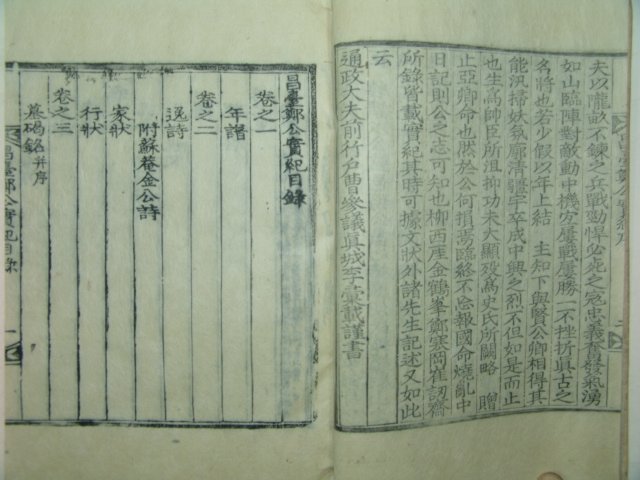 夫以隴畝不鍊之兵戰勁悍公死之寃忠義奮發氣湧
如山臨陣對敵動中機宜屢戰屢勝一不挫折眞古之
名將也若少假以年上結 主知下與賢公卿相得其
能汛掃妖氛廓清疆宇卒成中興之烈不但如是而止
也生高帥臣所沮抑功未大顯歿爲史氏所闕略 贈
止亞卿命也然於公何損焉臨終不忘報國命燒亂中
日記則公之志可知也柳西厓金鶴峯鄭寒岡崔訒齋
所錄皆載實紀其時可據文狀外諸先生記述又如此
云
通政大夫前行戶曹參議眞城李彙載謹書
昌臺鄭公實紀目錄
卷之一
年譜
卷之二
逸詩
附蘇菴金公詩
家狀
行狀
卷之三
墓碣銘并序
昌臺鄭公實紀目錄 一